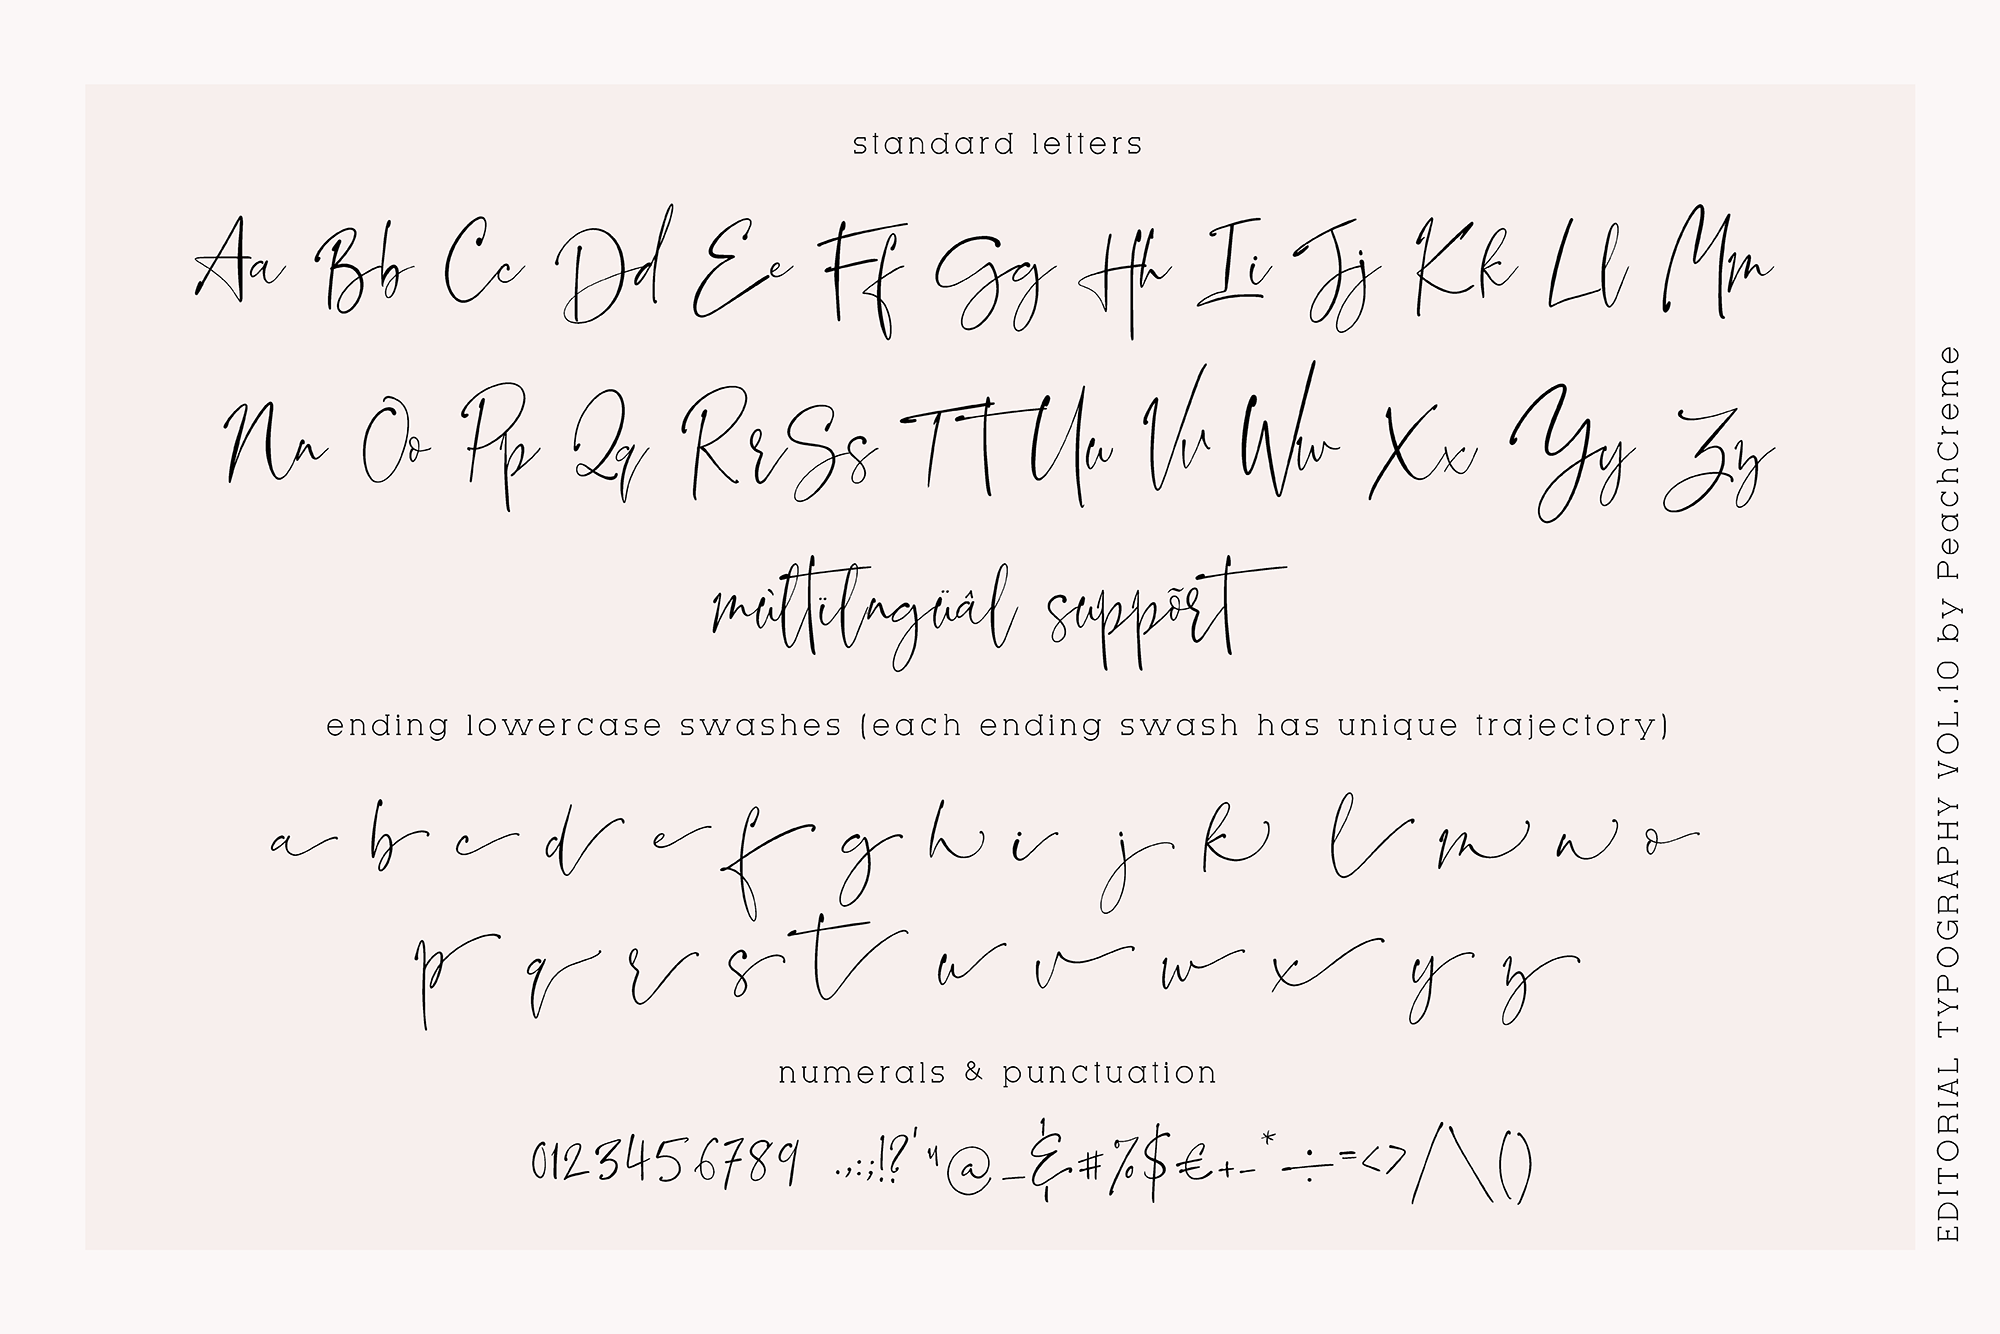 standard letters
Aa Bb Cc Dd Ee Ff Gg Hh Ii Jj Kk Ll Mm
Nn Oo Pp Qq Rr Ss Tt Uu Vv Ww Xx Yy Zz
mùltïlngüâl suppõrt
ending lowercase swashes (each ending swash has unique trajectory)
a b c d e f g h i j k l m n o
p q r s t u v w x y z
numerals & punctuation
0123456789 .,:;!?'"@_&#%$€+-*÷=<>/\()
EDITORIAL TYPOGRAPHY VOL.10 by PeachCreme